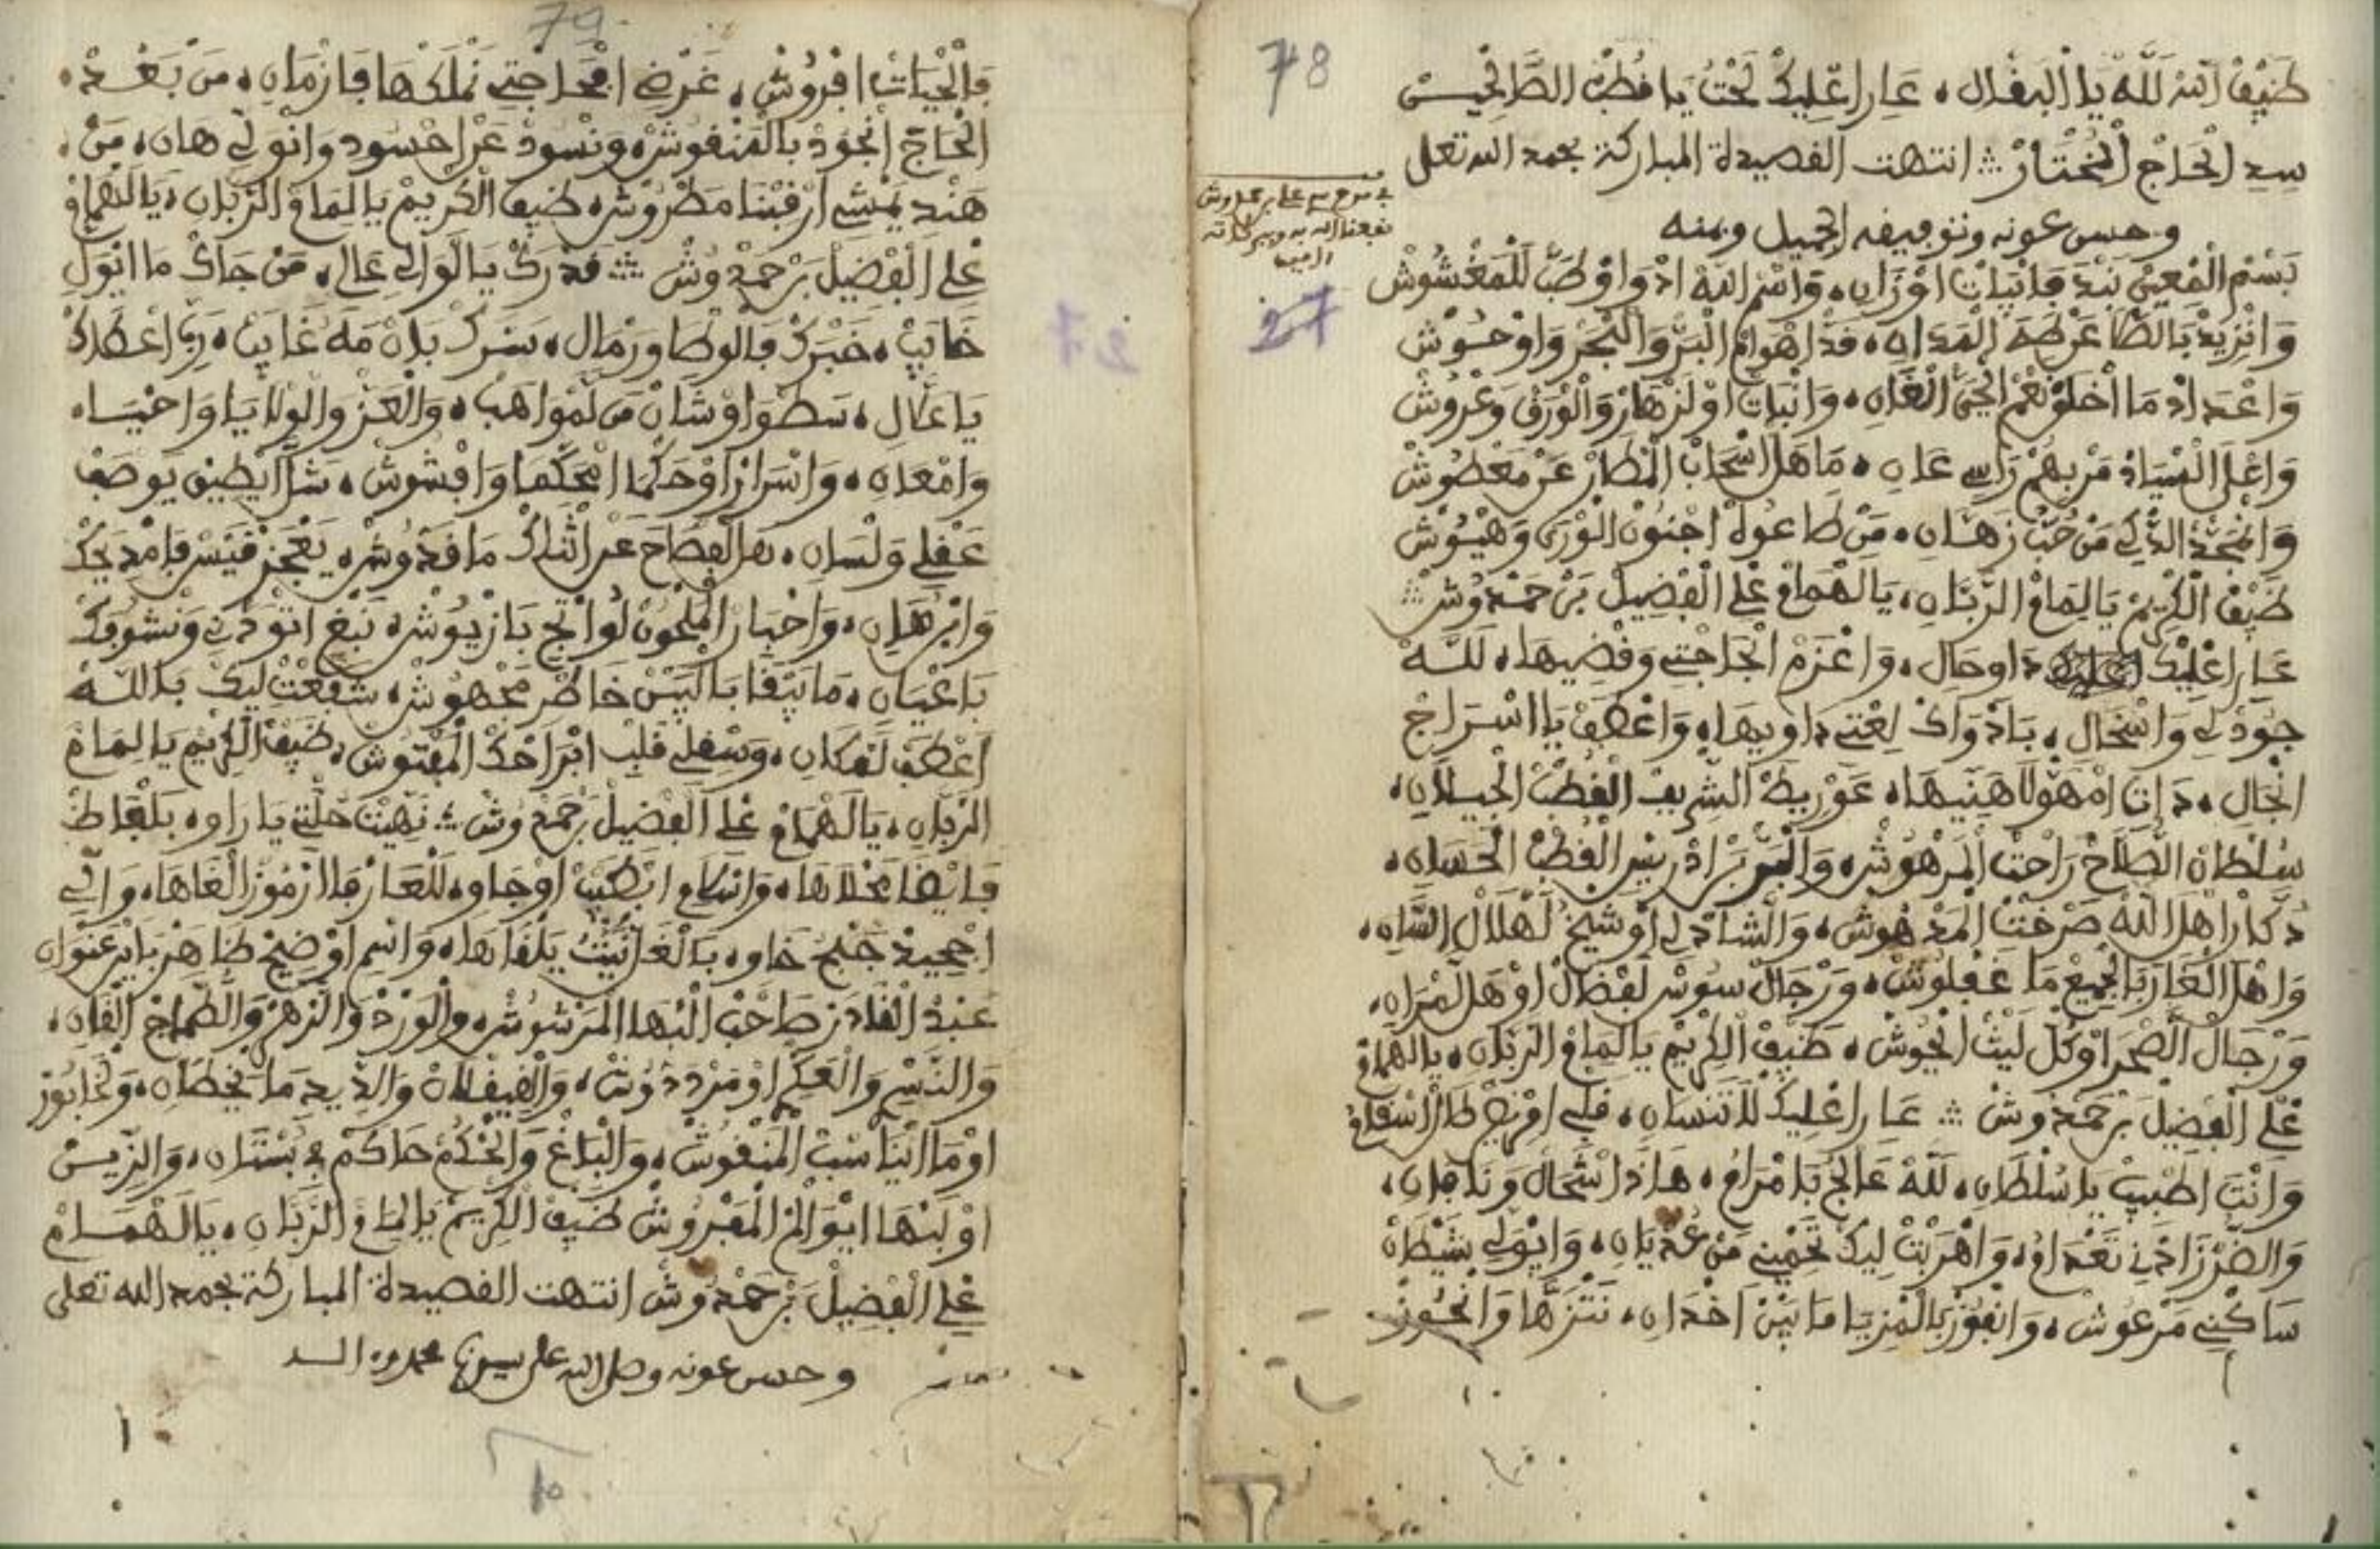 78
ضيف الله لله يا البقال، عار اعليك لحت يا قطب الصالحين
سيد الحاج المختار انتهت القصيدة المباركة بحمد الله تعلى
وحسن عونه وتوفيقه الجميل ومنه
نفعنا الله به وببركاته
27
بسم المعين نبد فانيات اوزان، واسم الله ادوا وطب للمغشوش
وانزيد بالصلا عن طه العدنان، قد اهوام البر والبحر واوحوش
واعداد ما اخلق نعم الحي الغان، وانبات اولزهار والورق وعروش
واعلى السياد من بهم راس عان، ما هل اسحاب المطار عن معطوش
وانمجد الذكي من حب زهان، من طاعوله اجنون الورى وهيوش
ضيف الكريم يا ليمام الربان، يا لهمام علي الفضيل بن حمدوش
عار اعليك داو حال، واعزم الحاجتي وقضيها، لله
جود لي واسحال، بادواك لعتي داويها، واعطف يا السراج
انجال، ذات امهولا هنيها، عوريط الشريف القطب الجيلان،
سلطان الصلاح راحت المرهوش، والبر بن ادريس القطب الحسان،
دكار اهل الله صرخت المدهوش، والشادلي اوشيخ لهلال السان،
واهل الغارب الجميع ما غفلوش، ورجال سوس لفضال اوهل لمران،
ورجال الصحرا وكل ليث الحوش، ضيف الكريم يا ليمام الربان، يا لهمام
علي الفضيل بن حمدوش عار اعليك لا تنسان، قلبي امريض طال اسقام
وانت اطبيب يا سلطان، لله عالج با مرام، هاذا اشحال ونا فان،
والضر زادني تعدام، واهربت ليك تحمين من عديان، وانولي بشيطان
ساكني مرعوش، وانفوز بالمزيا ما بين اخدان، نتنزها وانحوز
79
فالحيات افروش، غرضي افحاجتي نملكها فازمان، من بعد
الحاج انجود بالمنقوش، ونسود عن احسود وانولي هان، من
هند يمشي ارقبنا مطروش، ضيف الكريم يا ليمام الربان، يا لهمام
علي الفضيل بن حمدوش قدرك يا لوالي عالي، من جاك ما انول
خايب، خبرك فالوطا ورمال، سرك بان مه غايب، ربي اعطاك
يا عال، سطوا وشان من لمواهب، والعز والولايا واحيا،
وامعان، واسرار اوحكما امحكما وافشوش، شلا يطيق يوصف
عقلي ولسان، هل الفصاح عن اثناك ما قدوش، يعجز قيس فامديحك
وابرهان، واخبار الملحون لواتج بازيوش، نبغ اتودني ونشوفك
باعيان، ما يبقا بالبيس خاطر مجهوش، شفعت ليك بالله
اعطف لفكان، وسقلي قلب ابراحك المفتوش، ضيف الكريم يا ليمام
الربان، يا لهمام علي الفضيل بن حمدوش نهيت حلتي يا راو، بلفاظ
فايضا محلاها، وانسام ابطيب اوجاو، للعارفا ارموز الغاها، والي
اجحيد جنح خاو، بالغا نبيث يلقاها، واسم اوضيح ظاهر بابن عنوان
عبد القادر صاحب البها المرشوش، والورد والزهر والطماح القان،
والنسر والعكم او مرددوش، والقيقلان والذيدما يخطان، ونحابوز
اوما ايناسب المنقوش، والباغ والحكم حاكم في بستان، والزيس
اولبنها ايوالم المفروش ضيف الكريم يا ليمام الربان، يا لهمام
علي الفضيل بن حمدوش انتهت القصيدة المباركة بحمد الله تعلى
وحسن عونه وصلى الله على سيدنا محمد